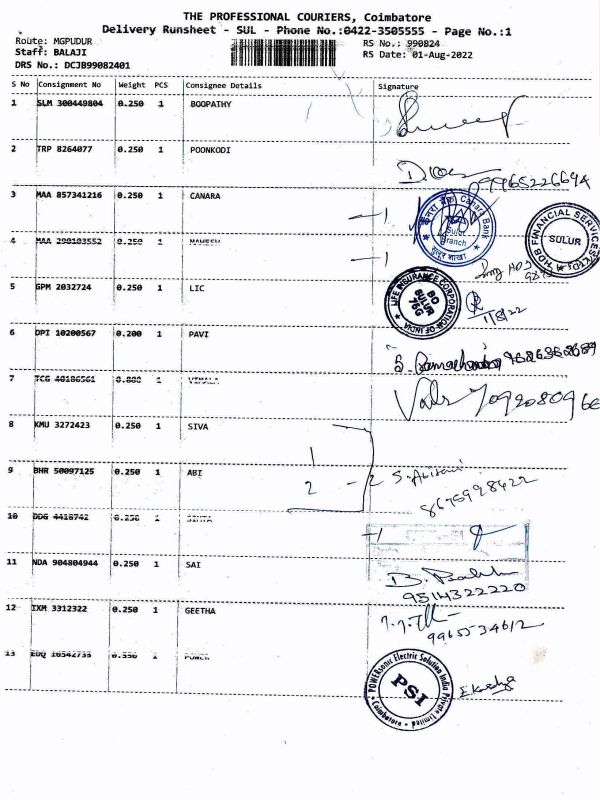 THE PROFESSIONAL COURIERS, Coimbatore
Delivery Runsheet - SUL - Phone No.:0422-3505555 - Page No.:1
Route: MGPUDUR
RS No.: 990824
Staff: BALAJI
RS Date: 01-Aug-2022
DRS No.: DCJB99082401
S No Consignment No Weight PCS Consignee Details Signature
1 SLM 300449804 0.250 1 BOOPATHY
2 TRP 8264077 0.250 1 POONKODI
09965226694
3 MAA 857341216 0.250 1 CANARA
-1
Canara Bank
Sulur
Branch
HDB FINANCIAL SERVICES
SULUR
4 MAA 298103552 0.250 1 MAHESH
-1
5 GPM 2032724 0.250 1 LIC
LIFE INSURANCE CORPORATION OF INDIA
BO
SULUR
76G
1/8/22
6 DPI 10200567 0.200 1 PAVI
7 TCG 40186561 0.800 1 VIMALA
8 KMU 3272423 0.250 1 SIVA
1
2 - 2
9 BHR 50097125 0.250 1 ABI
8675998422
10 DDG 4418742 0.250 1
-1
11 NDA 904804944 0.250 1 SAI
9514322220
12 IXM 3312322 0.250 1 GEETHA
9965534612
13 EDQ 16542733 0.550 1 POWER
POWERsonic Electric Solution India Private Limited
PSI
Coimbatore